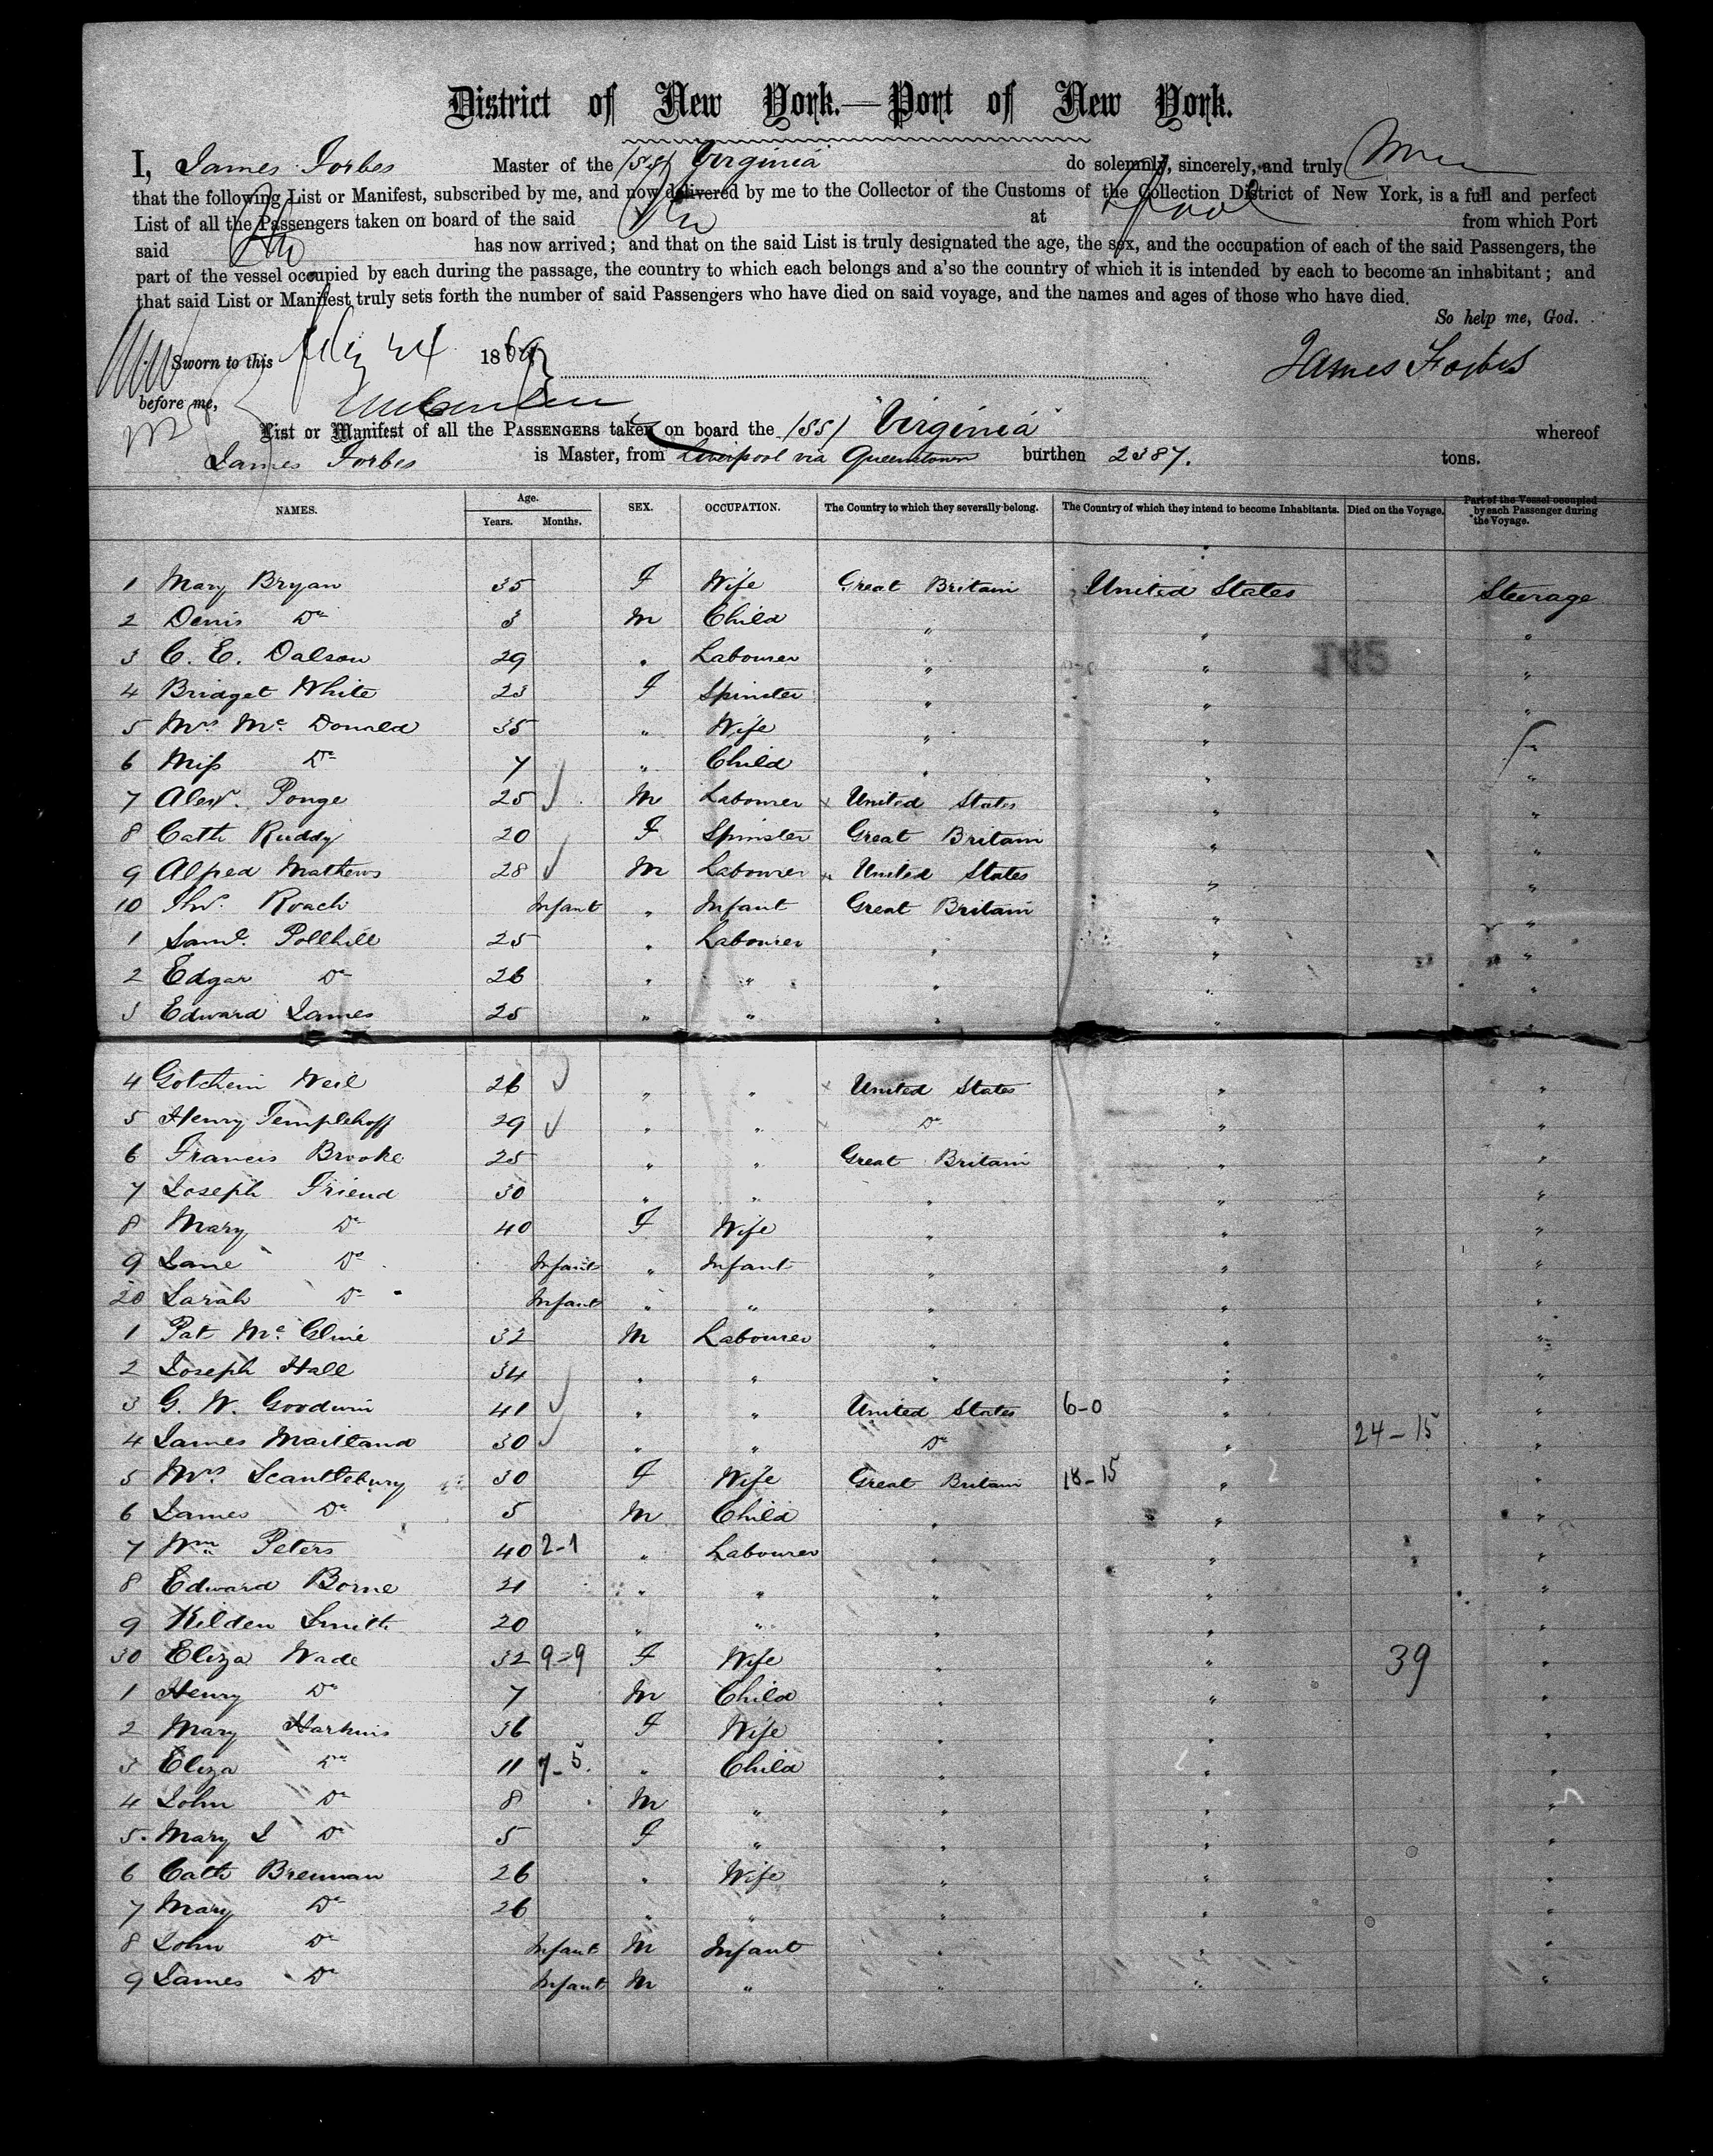 District of New York.—Port of New York.
I, James Forbes Master of the (SS) Virginia do solemnly, sincerely, and truly
that the following List or Manifest, subscribed by me, and now delivered by me to the Collector of the Customs of the Collection District of New York, is a full and perfect
List of all the Passengers taken on board of the said at from which Port
said has now arrived; and that on the said List is truly designated the age, the sex, and the occupation of each of the said Passengers, the
part of the vessel occupied by each during the passage, the country to which each belongs and a'so the country of which it is intended by each to become an inhabitant; and
that said List or Manifest truly sets forth the number of said Passengers who have died on said voyage, and the names and ages of those who have died.
So help me, God.
Sworn to this 24 1869 James Forbes
before me,
List or Manifest of all the PASSENGERS taken on board the (SS) "Virginia" whereof
James Forbes is Master, from Liverpool via Queenstown burthen 2387. tons.
NAMES. Age. Years. Months. SEX. OCCUPATION. The Country to which they severally belong. The Country of which they intend to become Inhabitants. Died on the Voyage. Part of the Vessel occupied by each Passenger during the Voyage.
1 Mary Bryan 35 F Wife Great Britain United States Steerage
2 Denis Do 3 M Child " " "
3 C. E. Dalson 29 " Labourer " " "
142
4 Bridget White 23 F Spinster " " "
5 Mrs Mc Donald 35 " Wife " " "
6 Miss Do 7 " Child " " "
7 Alexr. Ponge 25 M Labourer United States " "
8 Cath Ruddy 20 F Spinster Great Britain " "
9 Alfred Mathews 28 M Labourer United States " "
10 Roach Infant " Infant Great Britain " "
1 Saml. Pollhill 25 " Labourer " " "
2 Edgar Do 26 " " " " "
3 Edward James 25 " " " " "
4 Gotchein Weil 26 " " United States " "
5 Henry Templehoff 29 " " Do " "
6 Francis Brooke 25 " " Great Britain " "
7 Joseph Friend 30 " " " " "
8 Mary Do 40 F Wife " " "
9 Jane Do Infant " Infant " " "
20 Sarah Do Infant " " " " "
1 Pat Mc Cline 32 M Labourer " " "
2 Joseph Hall 34 " " " " "
3 G. W. Goodwin 41 " " United States 6-0 " "
4 James Maitland 30 " " Do " 24-15 "
5 Mrs Scantlebury 30 F Wife Great Britain 18-15 " "
6 James Do 5 M Child " " "
7 Wm Peters 40 2-1 " Labourer " " "
8 Edward Borne 21 " " " " "
9 Kelden Smith 20 " " " " "
30 Eliza Wade 32 9-9 F Wife " " 39 "
1 Henry Do 7 M Child " " "
2 Mary Harkins 36 F Wife " " "
3 Eliza Do 11 7-5 " Child " " "
4 John Do 8 M " " " "
5 Mary J Do 5 F " " " "
6 Cath Brennan 26 " Wife " " "
7 Mary Do 26 " " " " "
8 John Do Infant M Infant " " "
9 James Do Infant M " " " "